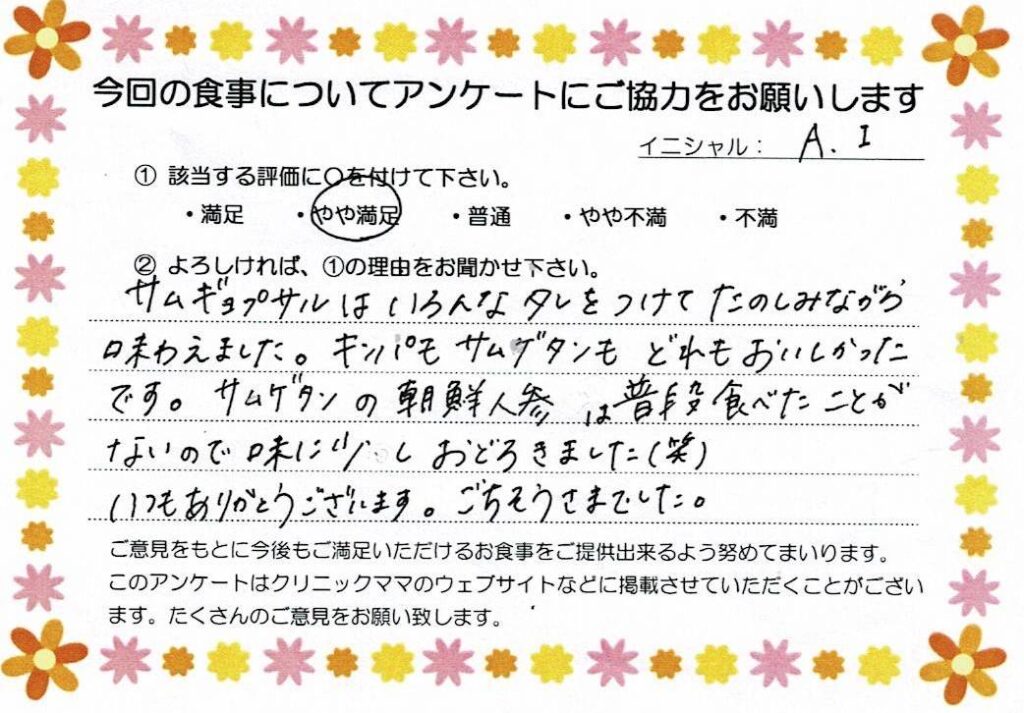 今回の食事についてアンケートにご協力をお願いします
イニシャル： A. I
① 該当する評価に○を付けて下さい。
・満足 ・やや満足 ・普通 ・やや不満 ・不満
② よろしければ、①の理由をお聞かせ下さい。
サムギョプサルはいろんなタレをつけてたのしみながら
味わえました。キンパもサムゲタンもどれもおいしかった
です。サムゲタンの朝鮮人参は普段食べたことが
ないので味に少しおどろきました(笑)
いつもありがとうございます。ごちそうさまでした。
ご意見をもとに今後もご満足いただけるお食事をご提供出来るよう努めてまいります。
このアンケートはクリニックママのウェブサイトなどに掲載させていただくことがござい
ます。たくさんのご意見をお願い致します。